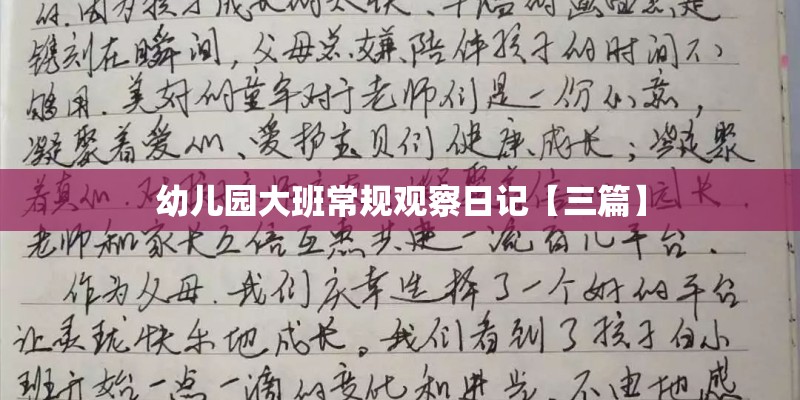 镌刻在瞬间，父母总嫌陪伴孩子的时间不
够用．美好的童年对于老师们是一份心意，
凝聚着爱心、爱护宝贝们健康成长；凝聚
着真心．
幼儿园大班常规观察日记【三篇】
老师和家长互信互惠共建一流育儿平台．
作为父母．我们庆幸选择了一个好的平台
让灵珑快乐地成长。我们看到了孩子自小
班开始一点一滴的变化和进步，不由地感